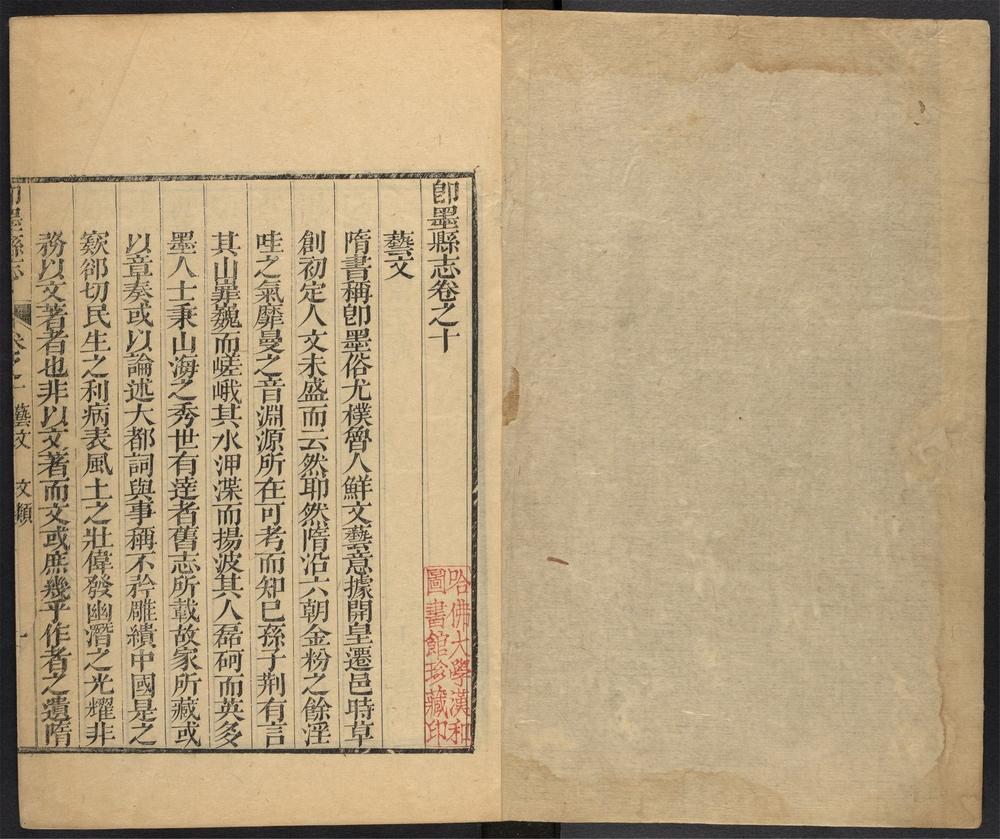 卽墨縣志卷之十
藝文
隋書稱卽墨俗尤樸魯人鮮文藝意據開皇遷邑時草
創初定人文未盛而云然耶然隋沿六朝金粉之餘淫
哇之氣靡曼之音淵源所在可考而知已孫子荆有言
其山嶵巍而嵯峨其水㳌渫而揚波其人磊砢而英多
墨人士秉山海之秀世有達者舊志所載故家所藏或
以章奏或以論述大都詞與事稱不矜雕繢中國是之
窽郤切民生之利病表風土之壯偉發幽潛之光耀非
務以文著者也非以文著而文或庶幾乎作者之遺隋
卽墨縣志
卷之十 藝文 文類 一
哈佛大學漢和
圖書館珍藏印